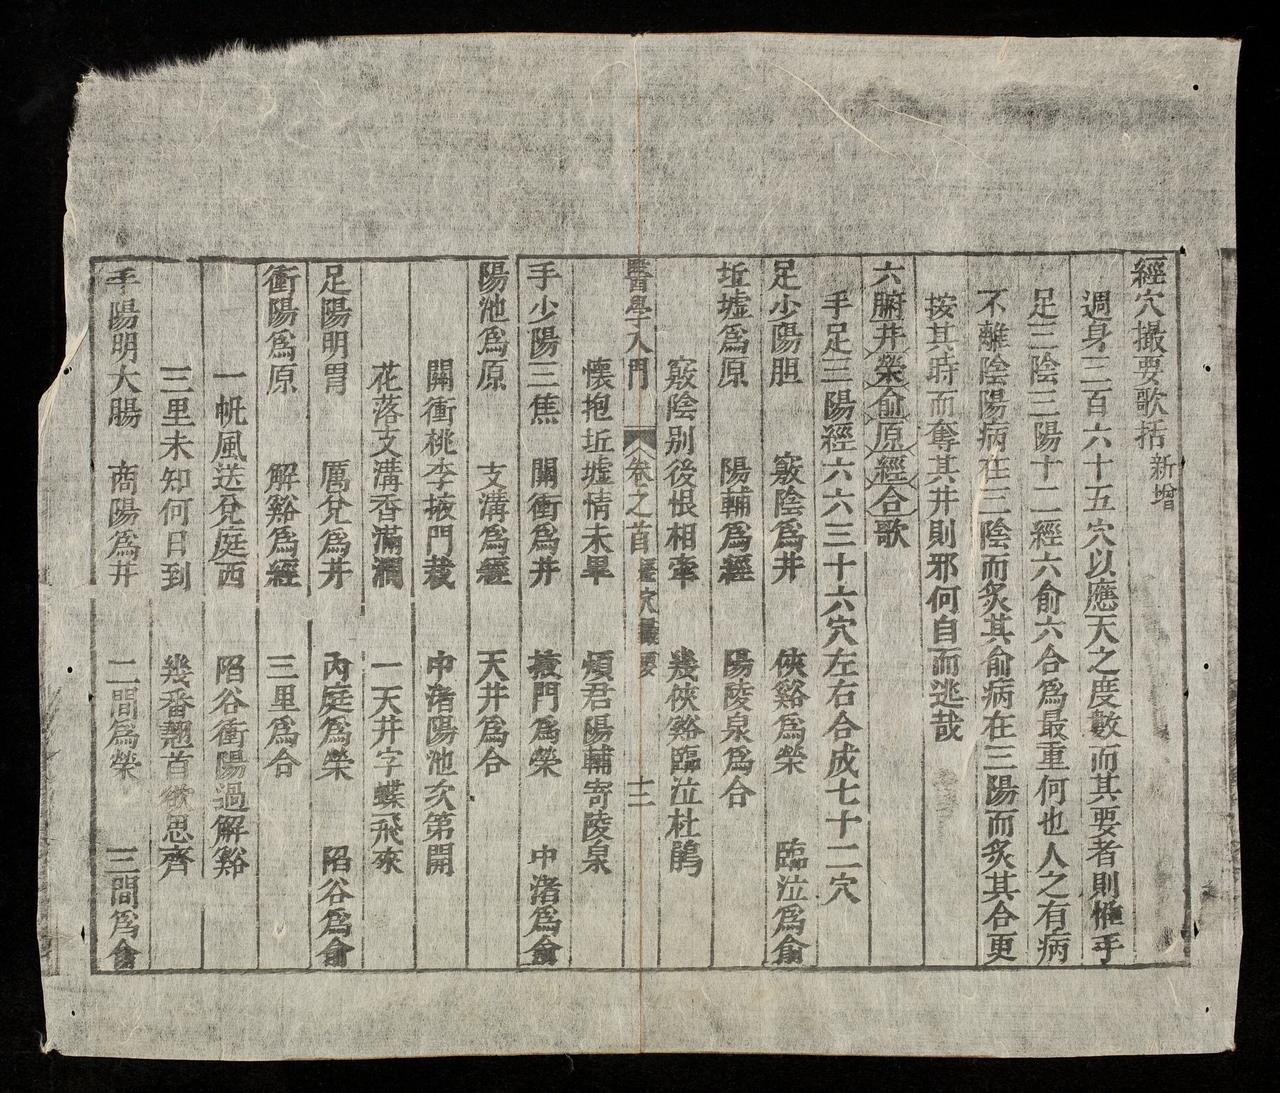 經穴撮要歌括 新增
週身三百六十五穴以應天之度數而其要者則惟手
足三陰三陽十二經六俞六合爲最重何也人之有病
不離陰陽病在三陰而炙其俞病在三陽而炙其合更
按其時而奪其井則邪何自而逃哉
六腑井榮俞原經合歌
手足三陽經六六三十六穴左右合成七十二穴
足少陽胆 竅陰爲井 俠谿爲榮 臨泣爲俞
坵墟爲原 陽輔爲經 陽陵泉爲合
竅陰别後恨相牽 幾俠谿臨泣杜鵑
懷抱坵墟情未畢 煩君陽輔寄陵泉
醫學入門 卷之首 經穴最要 十二
手少陽三焦 關衝爲井 掖門爲榮 中渚爲俞
陽池爲原 支溝爲經 天井爲合
關衝桃李掖門栽 中渚陽池次第開
花落支溝香滿澗 一天井字蝶飛來
足陽明胃 厲兌爲井 內庭爲榮 陷谷爲俞
衝陽爲原 解谿爲經 三里爲合
一帆風送兌庭西 陷谷衝陽過解谿
三里未知何日到 幾番翹首欲思齊
手陽明大腸 商陽爲井 二間爲榮 三間爲俞